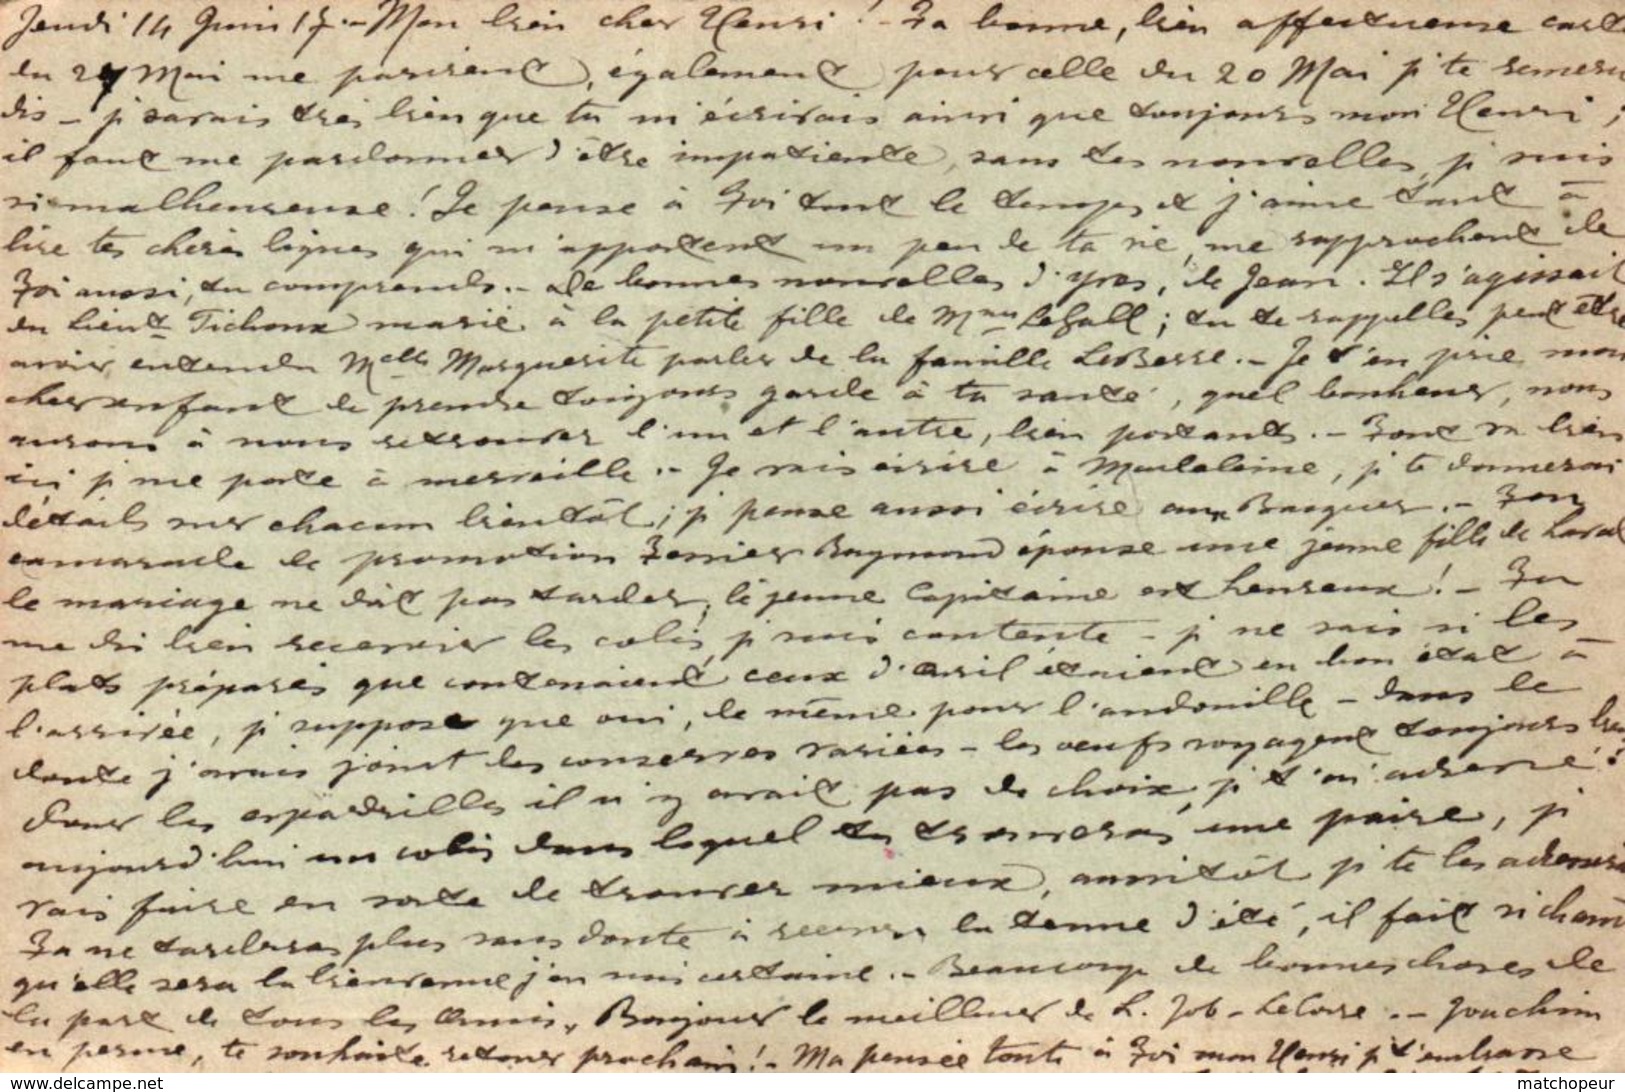 Jeudi 14 Juin 17.- Mon bien cher Henri ! - Ta bonne, bien affectueuse carte
du 27 Mai me parvient, également pour celle du 20 Mai je te remercie
dis - je savais très bien que tu m'écrivais ainsi que toujours mon Henri ;
il faut me pardonner d'être impatiente, sans tes nouvelles, je suis
si malheureuse ! Je pense à Toi tout le temps et j'aime tant à
lire tes chères lignes qui m'apportent un peu de ta vie, me rapprochent de
Toi aussi, tu comprends. - De bonnes nouvelles d'Yves, de Jean. Il s'agissait
du Lieut Tichoux marié à la petite fille de Mme LeGall ; tu te rappelles peut être
avoir entendu Melle Marguerite parler de la famille LeBerre. - Je t'en prie mon
cher enfant de prendre toujours garde à ta santé, quel bonheur, nous
aurons à nous retrouver l'un et l'autre, bien portants. - Tout va bien
ici je me porte à merveille. - Je vais écrire à Madeleine, je te donnerai
détails sur chacun bientôt ; je pense aussi écrire aux - Ton
camarade de promotion Raymond épouse une jeune fille de Laval
le mariage ne doit pas tarder, le jeune Capitaine est heureux ! - Tu
me dis bien recevoir les colis, je suis contente - je ne sais si les
plats préparés que contenaient ceux d'Avril étaient en bon état à
l'arrivée, je suppose que oui, de même pour l'andouille - dans le
doute j'avais joint des conserves variées - les oeufs voyagent toujours bien ?
Pour les espadrilles il n'y avait pas de choix, je t'ai adressé
aujourd'hui un colis dans lequel tu trouveras une paire, je
vais faire en sorte de trouver mieux, aussitôt je te les adresserai
Tu ne tarderas plus sans doute à recevoir la tenue d'été, il fait si chaud
qu'elle sera la bienvenue j'en suis certaine. - Beaucoup de bonnes choses de
la part de tous les Amis, Bonjour le meilleur de L. Job - LeCorre. - Joachim
en perme, te souhaite retour prochain ! - Ma pensée toute à Toi mon Henri je t'embrasse
matchopeur